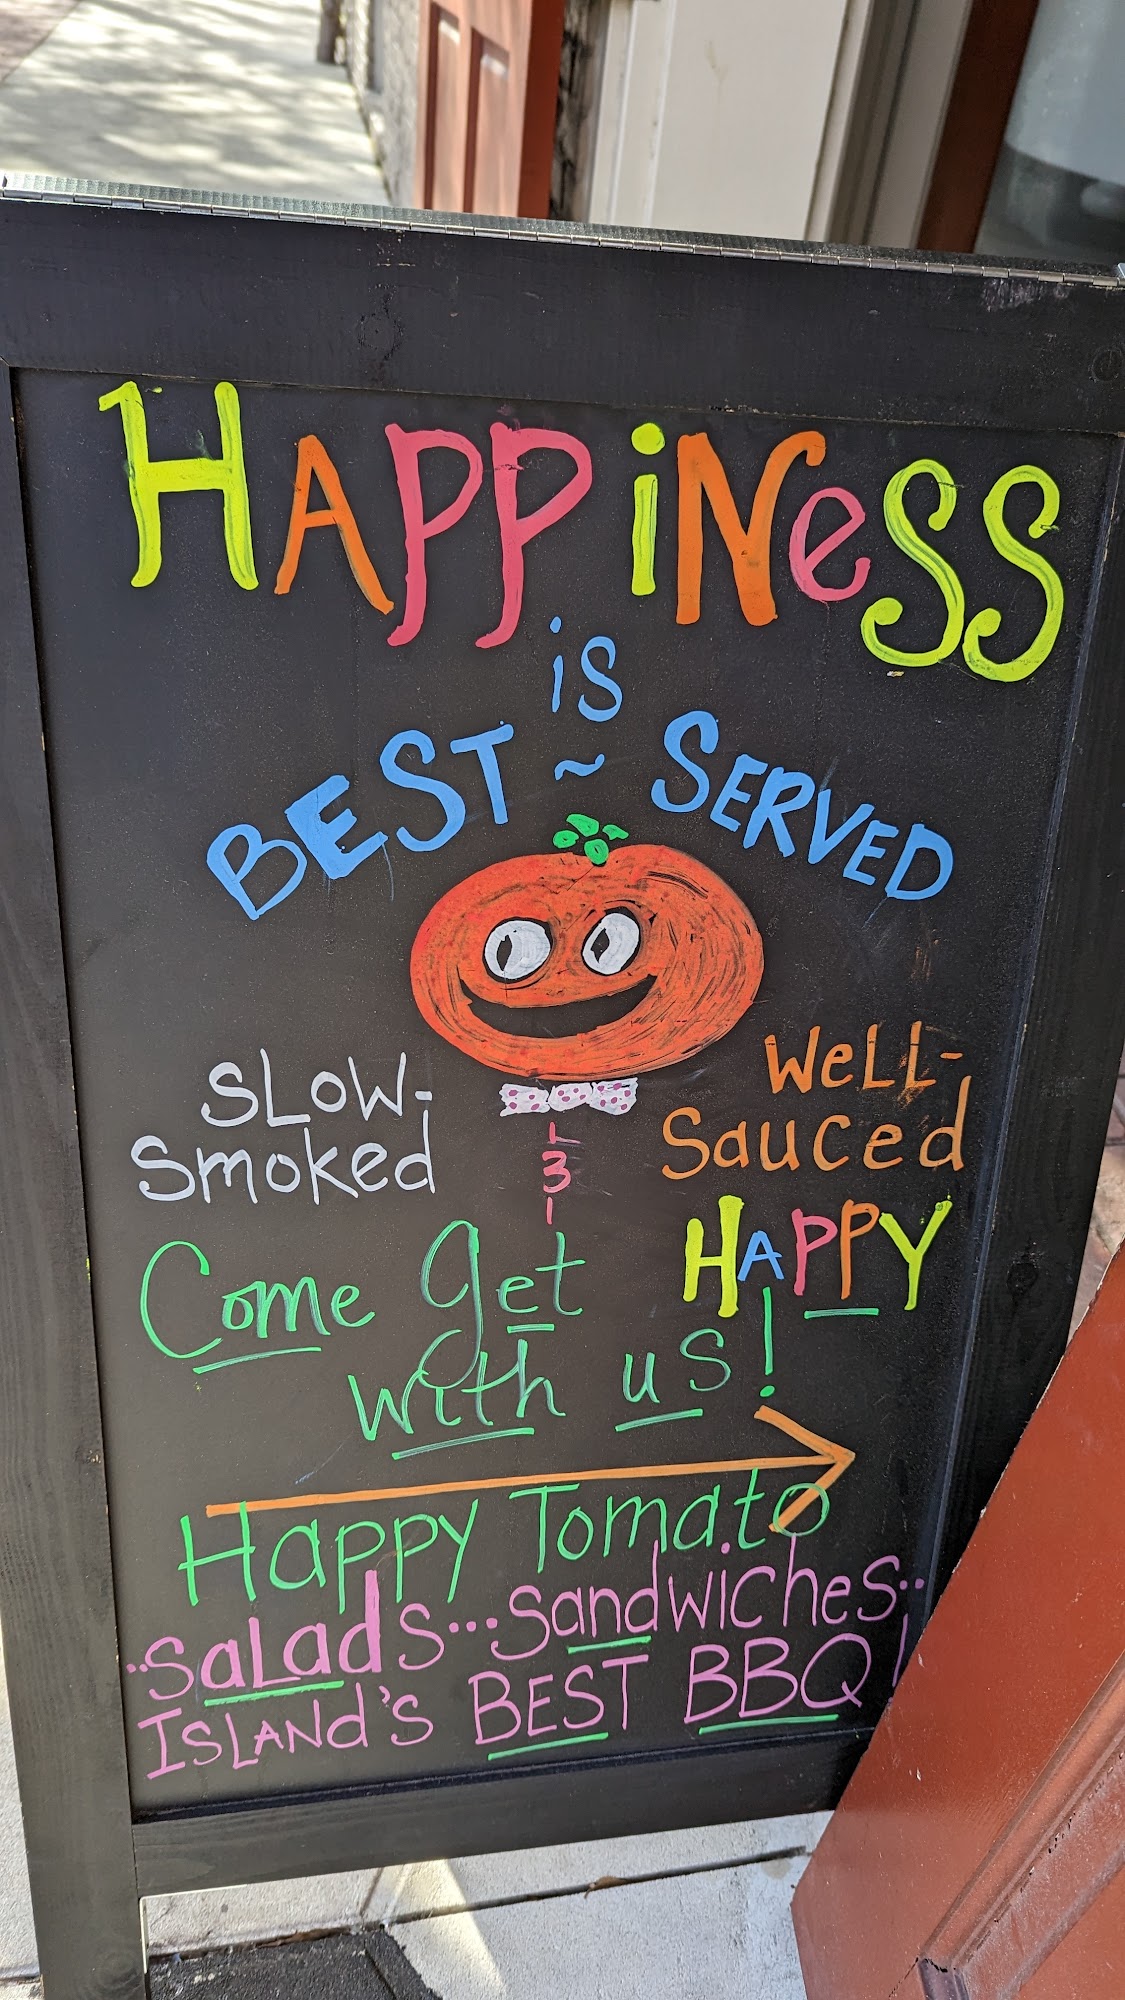 HAPPiNeSS
is
BEST ~ SERVED
SLOW-
Smoked
&
WeLL-
Sauced
Come get HAPPY
with us!
Happy Tomato
..SaLads...Sandwiches..
ISLANd's BEST BBQ!